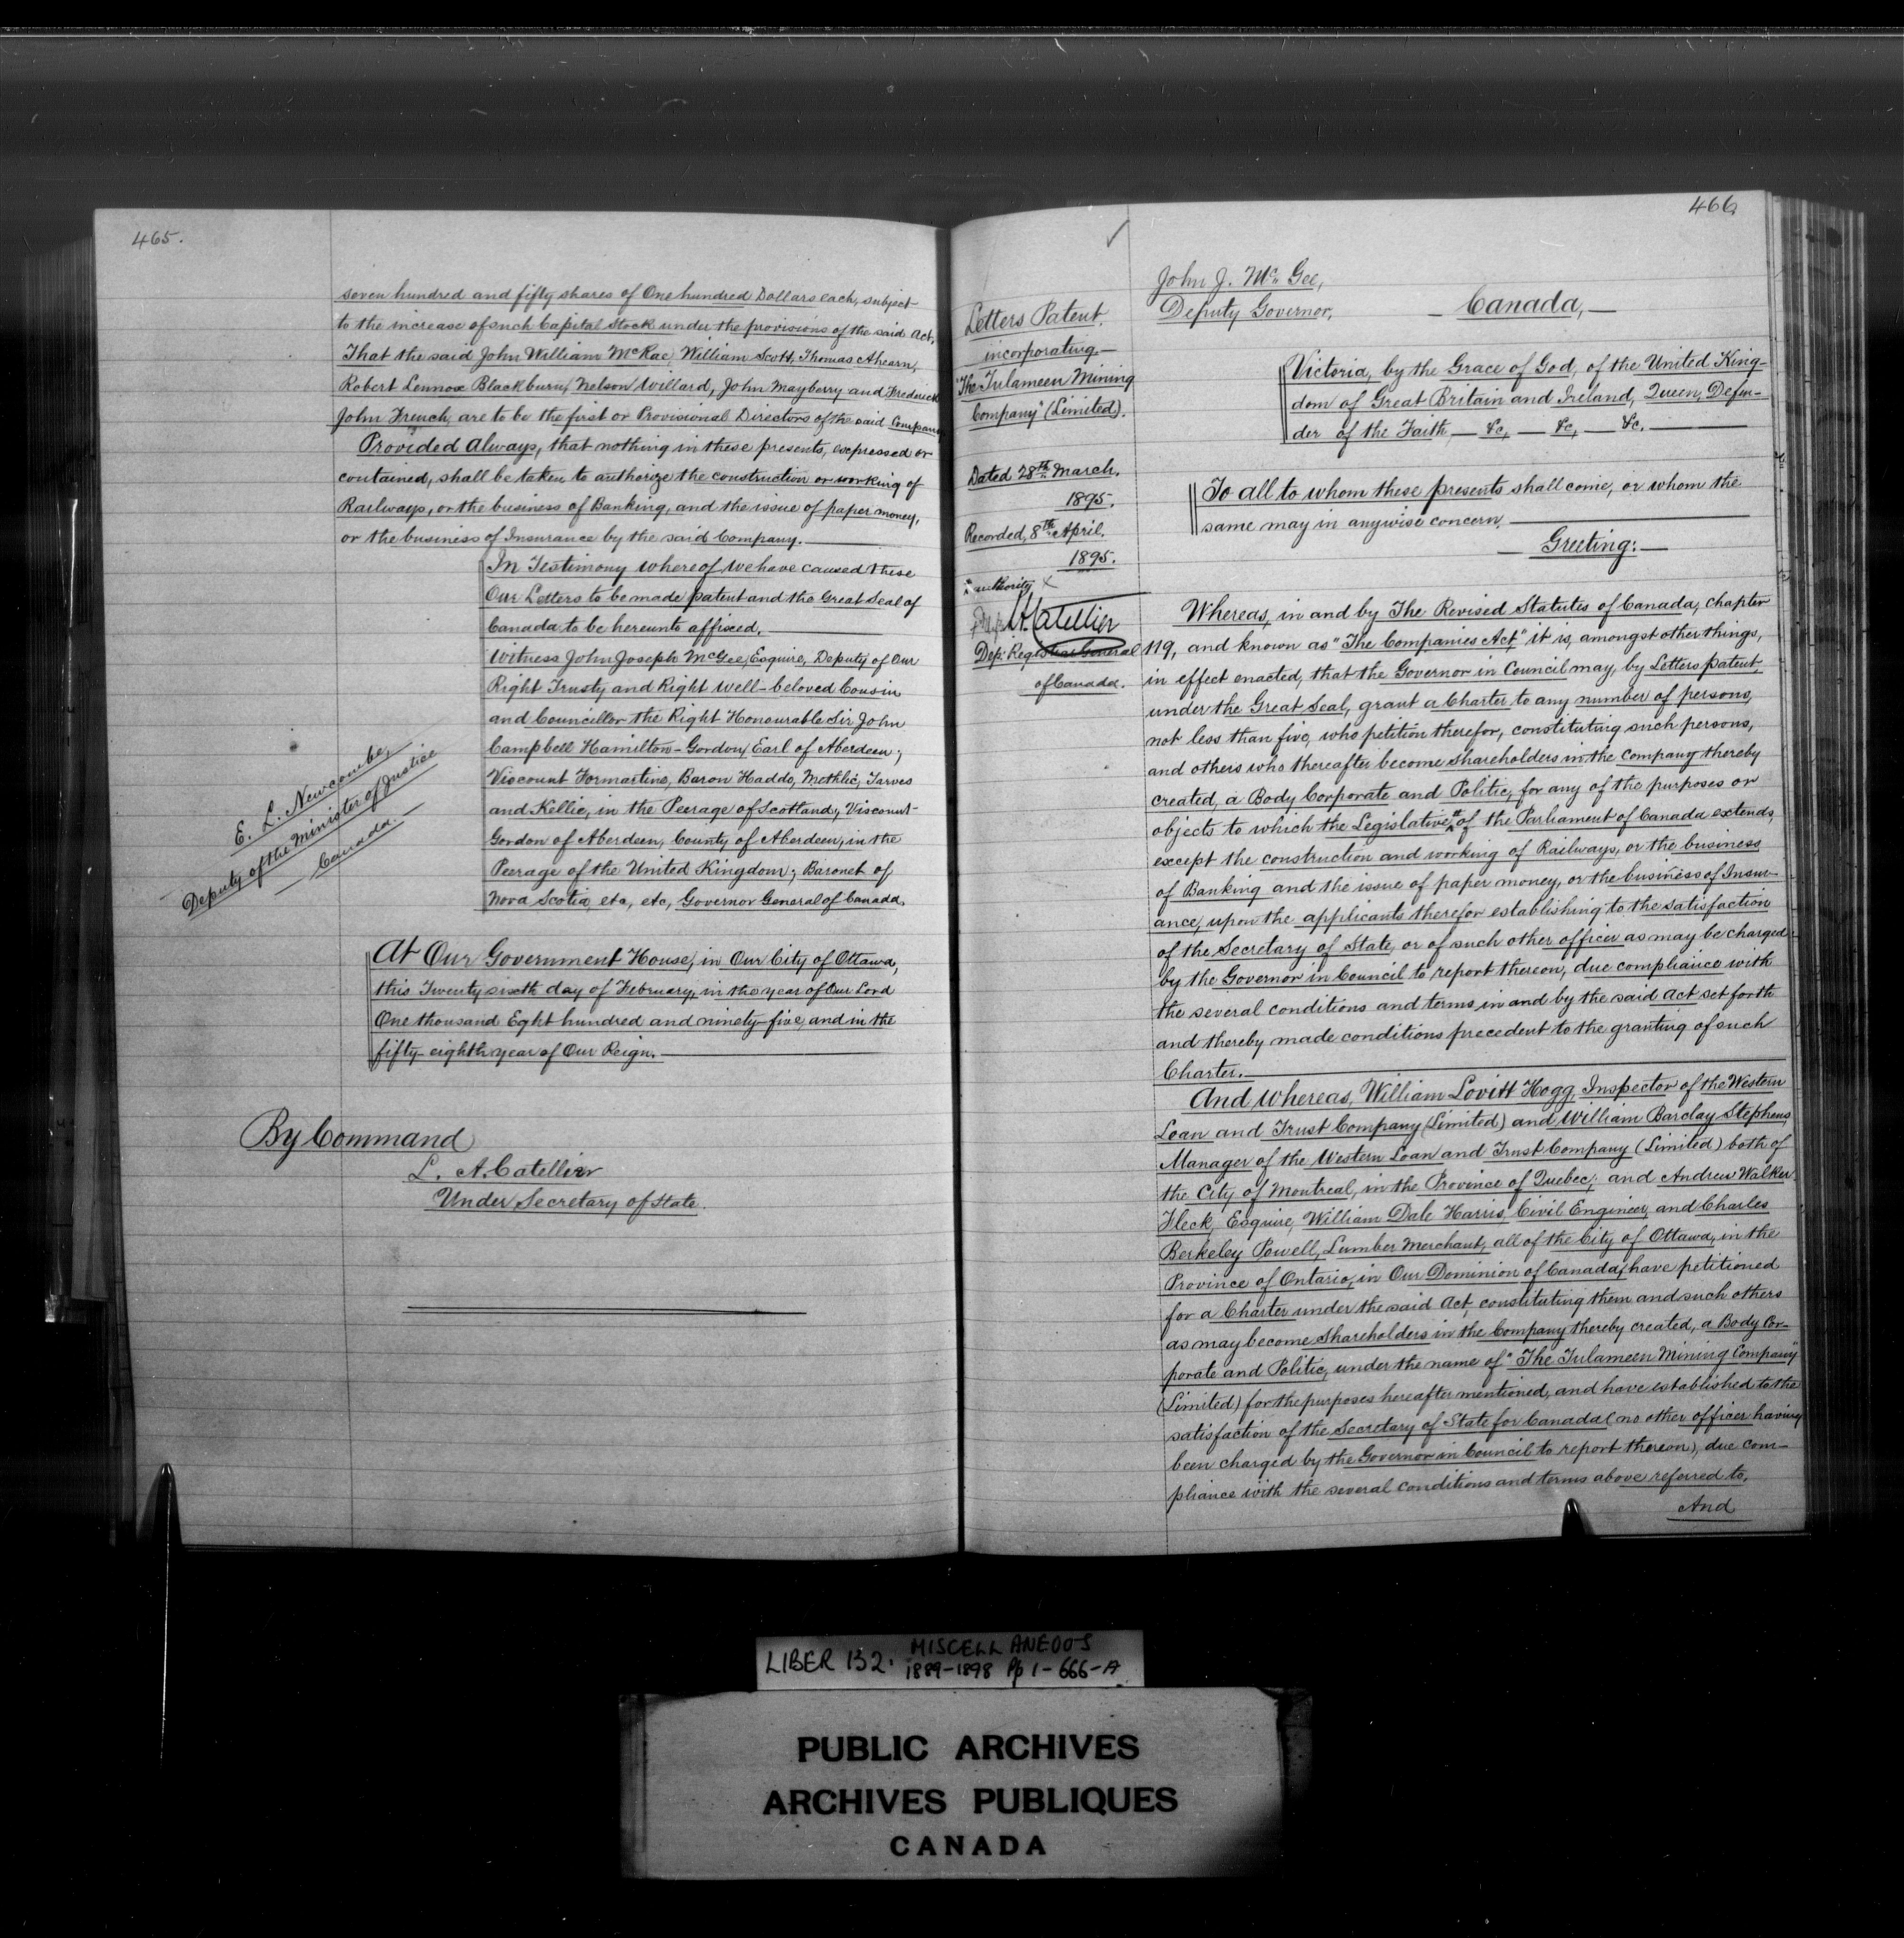 465.
seven hundred and fifty shares of One hundred Dollars each, subject
to the increase of such Capital Stock under the provisions of the said Act,
That the said John William McRae, William Scott, Thomas Ahearn,
Robert Lennox Blackburn, Nelson Willard, John Mayberry and Frederick
John French, are to be the first or Provisional Directors of the said Company
Provided Always, that nothing in these presents, expressed or
contained, shall be taken to authorize the construction or working of
Railways, or the business of Banking, and the issue of paper money,
or the business of Insurance by the said Company.
In Testimony whereof we have caused these
Our Letters to be made patent and the Great Seal of
Canada to be hereunto affixed.
Witness John Joseph McGee, Esquire, Deputy of Our
Right Trusty and Right well-beloved Cousin
and Councillor the Right Honourable Sir John
Campbell Hamilton-Gordon, Earl of Aberdeen;
Viscount Formartine, Baron Haddo, Methlic, Tarves
and Kellie, in the Peerage of Scotland; Viscount
Gordon of Aberdeen, County of Aberdeen, in the
Peerage of the United Kingdom; Baronet of
Nova Scotia, etc, etc, Governor General of Canada.
E. L. Newcombe,
Deputy of the Minister of Justice
Canada.
At Our Government House, in Our City of Ottawa,
this Twenty sixth day of February, in the year of Our Lord
One thousand Eght hundred and ninety-five, and in the
fifty-eighth year of Our Reign.
By Command
L. A. Catellier
Under Secretary of State.
466
Letters Patent
incorporating
"The Tulameen Mining
Company" (Limited).
Dated 28th March.
1895.
Recorded, 8th April.
1895.
authority
L.A. Catellier
Dep: Registrar General
of Canada.
John J. McGee,
Deputy Governor.
Canada,
Victoria, by the Grace of God, of the United King-
dom of Great Britain and Ireland, Queen, Defen-
der of the Faith, &c, &c, &c.
To all to whom these presents shall come, or whom the
same may in anywise concern
Greeting:
Whereas, in and by The Revised Statutes of Canada, chapter
119, and known as "The Companies Act," it is, amongst other things,
in effect enacted, that the Governor in Council may, by Letters patent,
under the Great Seal, grant a Charter to any number of persons,
not less than five, who petition therefor, constituting such persons,
and others who thereafter become shareholders in the Company thereby
created, a Body Corporate and Politic, for any of the purposes or
objects to which the Legislative of the Parliament of Canada extends,
except the construction and working of Railways, or the business
of Banking and the issue of paper money, or the business of Insur-
ance, upon the applicants therefor establishing to the satisfaction
of the Secretary of State, or of such other officer as may be charged
by the Governor in Council to report thereon, due compliance with
the several conditions and terms, in and by the said Act set forth
and thereby made conditions precedent to the granting of such
Charter.
And whereas, William Lovitt Hogg, Inspector of the Western
Loan and Trust Company (Limited) and William Barclay Stephens,
Manager of the Western Loan and Trust Company (Limited) both of
the City of Montreal, in the Province of Quebec; and Andrew Walker
Fleck, Esquire, William Dale Harris, Civil Engineer, and Charles
Berkeley Powell, Lumber Merchant, all of the City of Ottawa, in the
Province of Ontario, in Our Dominion of Canada, have petitioned
for a Charter under the said Act, constituting them and such others
as may become shareholders in the Company thereby created, a Body Cor-
porate and Politic, under the name of "The Tulameen Mining Company"
(Limited) for the purposes hereafter mentioned, and have established to the
satisfaction of the Secretary of State for Canada (no other officer having
been charged by the Governor in Council to report thereon), due com-
pliance with the several conditions and terms above referred to.
And
LIBER 132. MISCELLANEOUS
1889-1898 Pp 1-666-A
PUBLIC ARCHIVES
ARCHIVES PUBLIQUES
CANADA